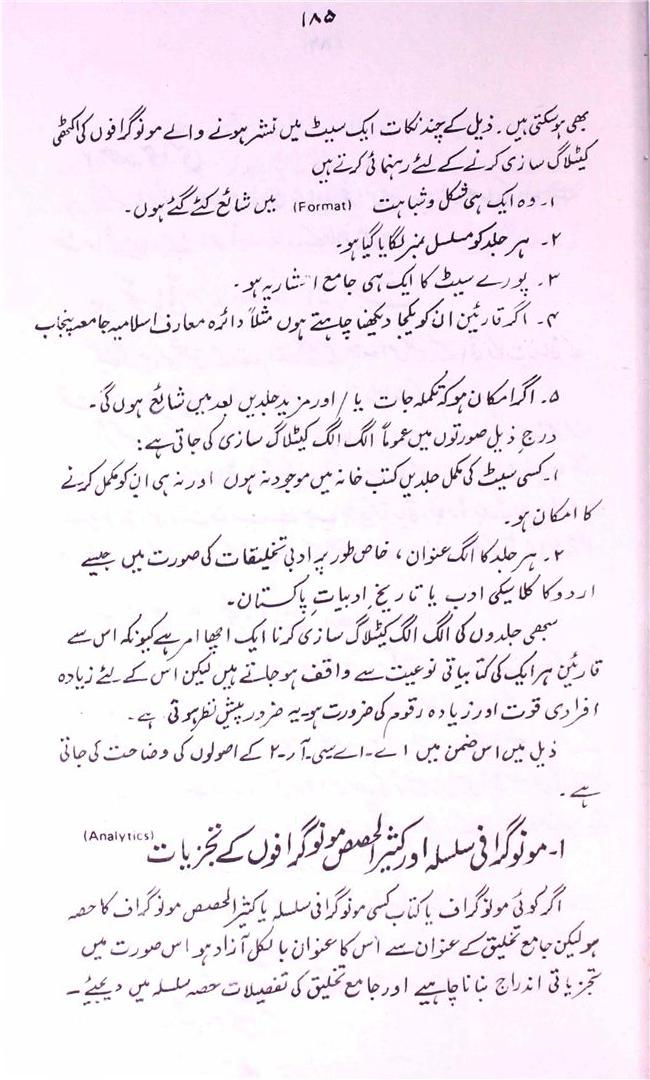 ۱۸۵
بھی ہوسکتی ہیں۔ ذیل کے چند نکات ایک سیٹ میں نشر ہونے والے مونوگرافوں کی اکٹھی
کیٹلاگ سازی کرنے کے لئے رہنمائی کرتے ہیں
۱۔ وہ ایک ہی شکل و شباہت (Format) میں شائع کئے گئے ہوں۔
۲۔ ہر جلد کو مسلسل نمبر لگایا گیا ہو۔
۳۔ پورے سیٹ کا ایک ہی جامع اشاریہ ہو۔
۴۔ اگر قارئین ان کو یکجا دیکھنا چاہتے ہوں مثلاً دائرہ معارف اسلامیہ جامعہ پنجاب
۵۔ اگر امکان ہو کہ تکملہ جات یا / اور مزید جلدیں بعد میں شائع ہوں گی۔
درج ذیل صورتوں میں عموماً الگ الگ کیٹلاگ سازی کی جاتی ہے:
۱۔ کسی سیٹ کی مکمل جلدیں کتب خانہ میں موجود نہ ہوں اور نہ ہی ان کو مکمل کرنے
کا امکان ہو۔
۲۔ ہر جلد کا الگ عنوان، خاص طور پر ادبی تخلیقات کی صورت میں جیسے
اردو کا کلاسیکی ادب یا تاریخ ادبیاتِ پاکستان۔
سبھی جلدوں کی الگ الگ کیٹلاگ سازی کرنا ایک اچھا امر ہے کیونکہ اس سے
قارئین ہر ایک کی کتابیاتی نوعیت سے واقف ہو جاتے ہیں لیکن اس کے لئے زیادہ
افرادی قوت اور زیادہ رقوم کی ضرورت ہو۔ یہ ضرور پیش نظر ہوتی ہے۔
ذیل میں اس ضمن میں اے۔اے۔سی۔آر۔۲ کے اصولوں کی وضاحت کی جاتی
ہے۔
۱۔ مونوگرافی سلسلہ اور کثیر الحصص مونوگرافوں کے تجزیات (Analytics)
اگر کوئی مونوگراف یا کتاب کسی مونوگرافی سلسلہ یا کثیر الحصص مونوگراف کا حصہ
ہو لیکن جامع تخلیق کے عنوان سے اس کا عنوان بالکل آزاد ہو اس صورت میں
تجزیاتی اندراج بنانا چاہیے اور جامع تخلیق کی تفصیلات حصہ سلسلہ میں دیجیئے۔